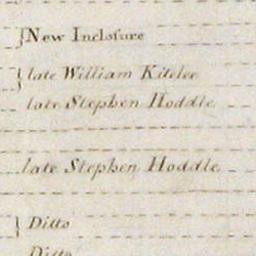 New Inclosure
late William Kitelee
late Stephen Hoddle
late Stephen Hoddle
Ditto
Ditto